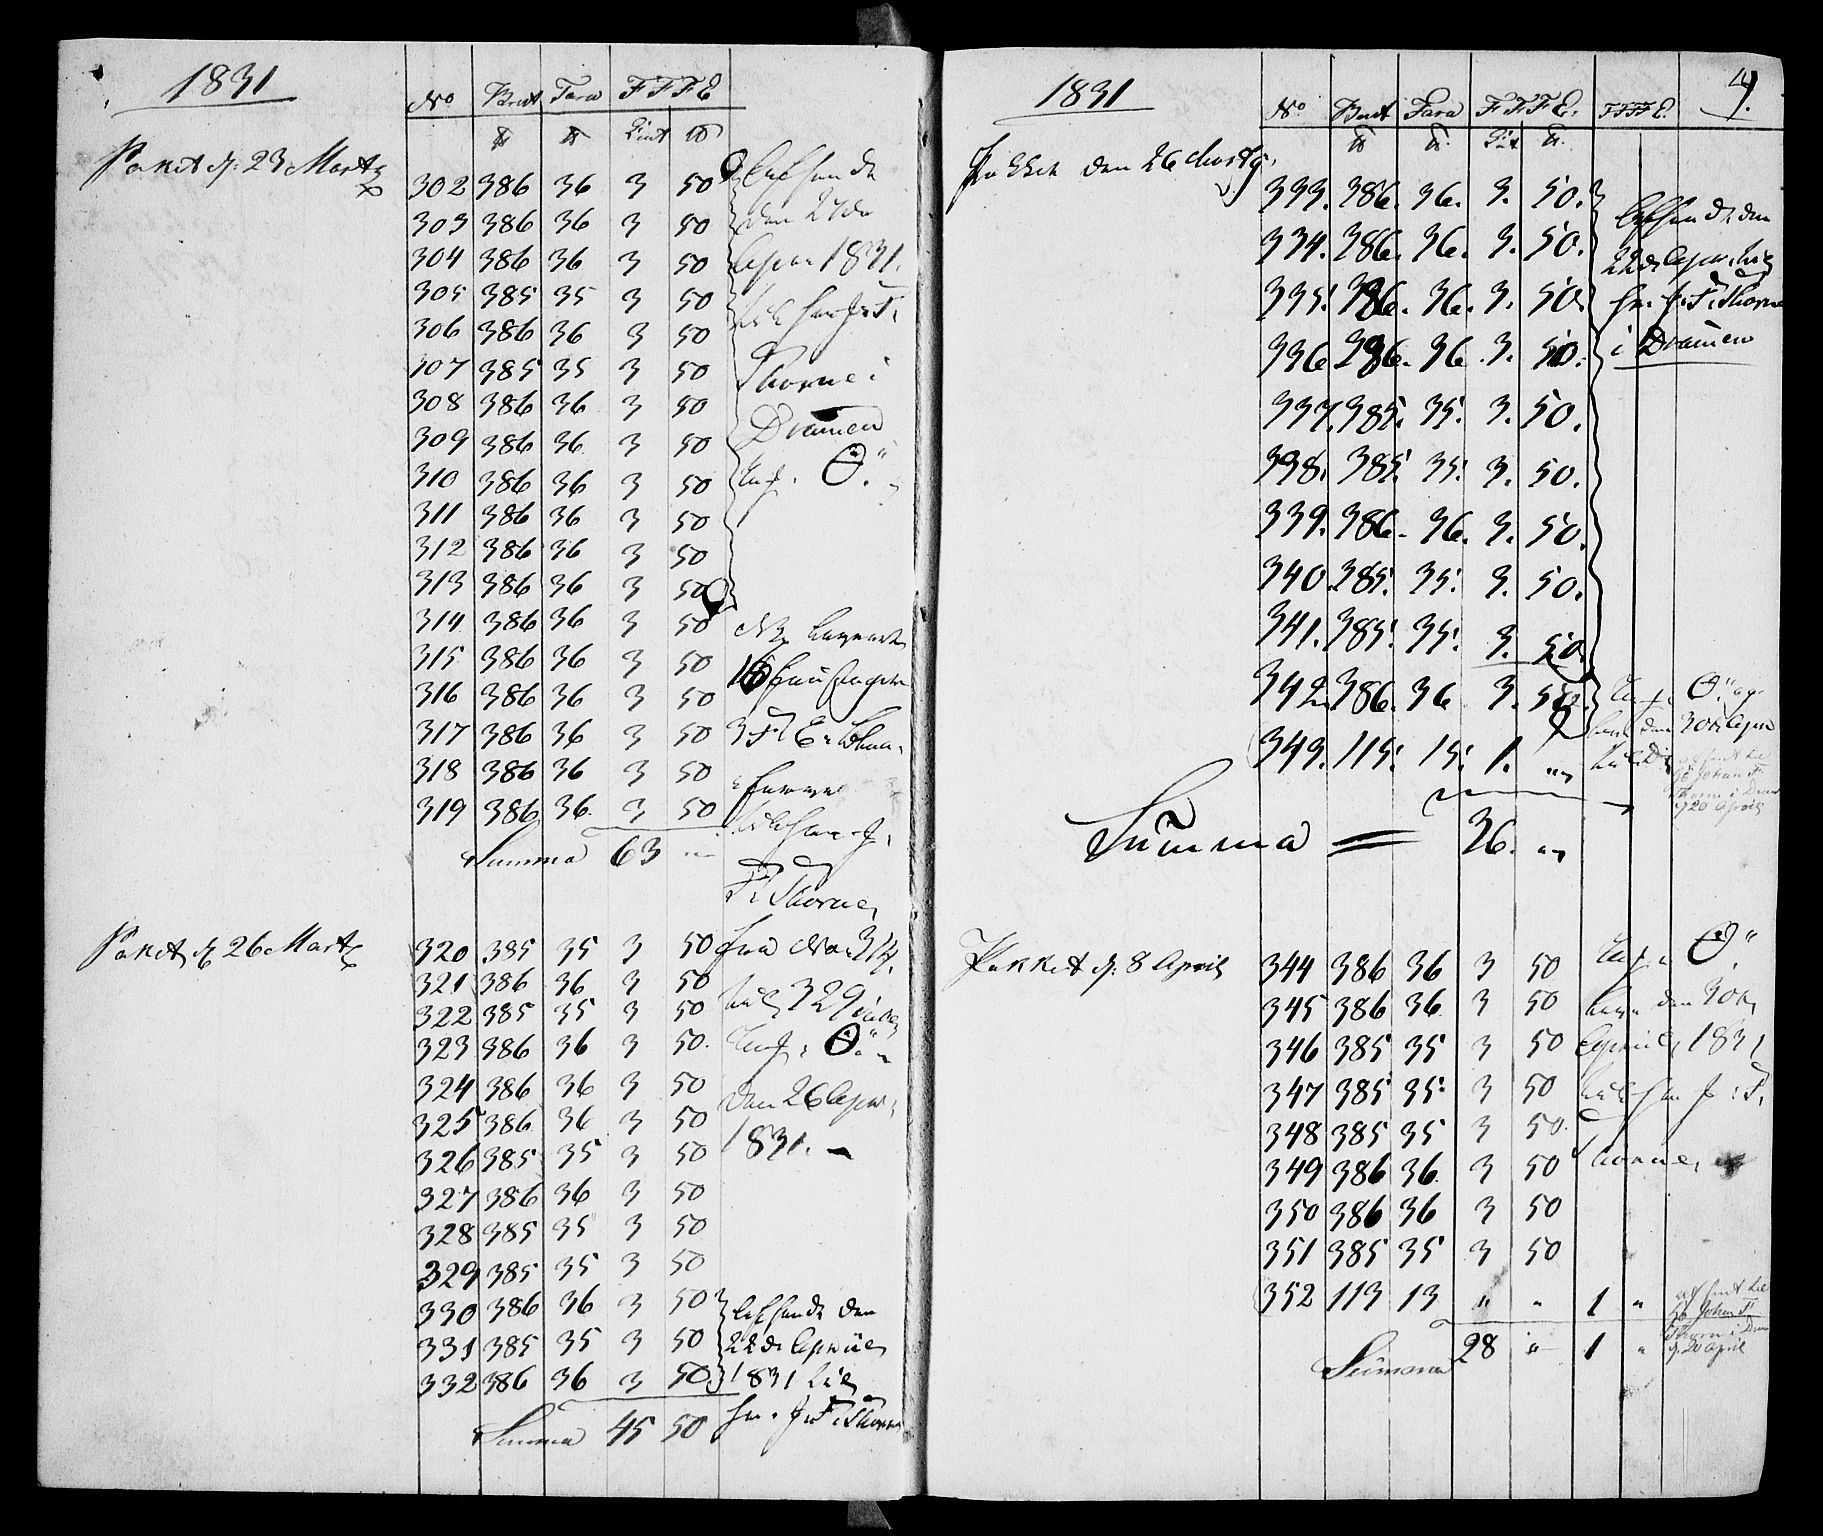 1831
No Brut Tara F F F E
℔ ℔ Cint ℔
Pakket d: 23 Marty
302 386 36 3 50
303 386 36 3 50
304 386 36 3 50
305 385 35 3 50
306 386 36 3 50
307 385 35 3 50
308 386 36 3 50
309 386 36 3 50
310 386 36 3 50
311 386 36 3 50
312 386 36 3 50
313 386 36 3 50
314 386 36 3 50
315 386 36 3 50
316 386 36 3 50
317 386 36 3 50
318 386 36 3 50
319 386 36 3 50
Summa 63 "
den 27de
1831.
Thorne i
Dramen
3 F E
F: Thorne
Pakket d 26 Marty
320 385 35 3 50
321 386 36 3 50
322 385 35 3 50
323 386 36 3 50.
324 386 36 3 50
325 386 36 3 50
326 385 35 3 50
327 386 36 3 50
328 385 35 3 50
329 385 35 3 50
330 386 36 3 50
331 385 35 3 50
332 386 36 3 50
Summa 45 50
fra No 314
til 329
den 26 Apr
1831.
afsendt den
22de April
1831 til
Hr. J: F: Thorne
4.
1831
No Brut Tara F F F E. FFFF E.
℔ ℔ Cint ℔
Pakket den 26 Marty
333. 386. 36. 3. 50.
334. 386. 36. 3. 50.
335. 386. 36. 3. 50.
336. 386. 36. 3. 50.
337. 385. 35. 3. 50.
338. 385. 35. 3. 50.
339. 386. 36. 3. 50.
340. 385. 35. 3. 50.
341. 385. 35. 3. 50.
342. 386. 36 3. 50.
343. 115. 15. 1. "
Summa = 36. "
afsendt den
22de Apr. til
Hr. J: F: Thorne
i Dramen
den 30te Apr
afsent til
Johan F.
Thorn i Dram
20 April
Pakket d: 8 April
344 386 36 3 50
345 386 36 3 50
346 385 35 3 50
347 385 35 3 50
348 385 35 3 50.
349 386 36 3 50
350 386 36 3 50
351 385 35 3 50
352 113 13 " " 1 "
Summa 28 " 1 "
den 30te
April 1831
til Hr J: F:
Thorne
afsent til
Johan F.
Thorn i Dram
d 20 April